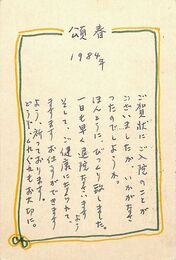 頌春
1984年
ご賀状にご入院のことが
ございましたが、いかがなさ
ったのでしょうか。
ほんとうにびっくり致しました。
一日も早く退院なさいますよう
そして、ご健康になられて、
ますますお仕事ができます
よう、祈っております。
どうぞ、くれぐれもお大切に。